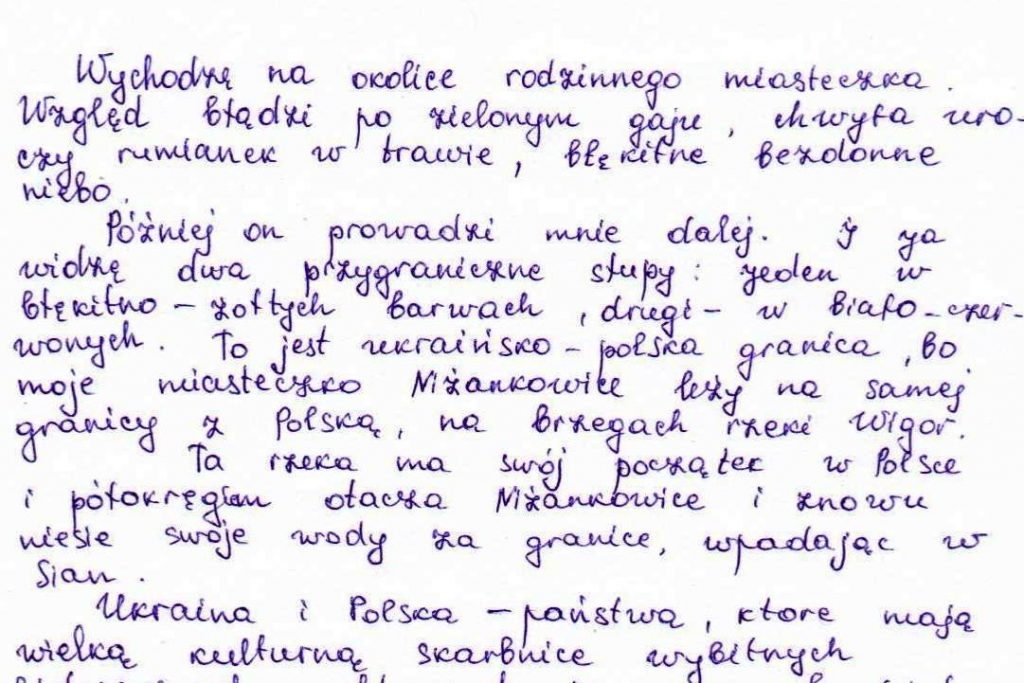 Wychodzę na okolice rodzinnego miasteczka.
Wzgłęd błądzi po zielonym gaju, chwyta uro-
czy rumianek w trawie, błękitne bezdonne
niebo.
Później on prowadzi mnie dalej. I ja
widzę dwa przygraniczne słupy: jeden w
błękitno-żołtych barwach, drugi - w biało-czer-
wonych. To jest ukraińsko-polska granica, bo
moje miasteczko Niżankowice leży na samej
granicy z Polską, na brzegach rzeki Wigor.
Ta rzeka ma swój początek w Polsce
i półokręgiem otacza Niżankowice i znowu
niesie swoje wody za granice, wpadając w
Sian.
Ukraina i Polska - państwa, ktore mają
wielką kulturną skarbnice wybitnych